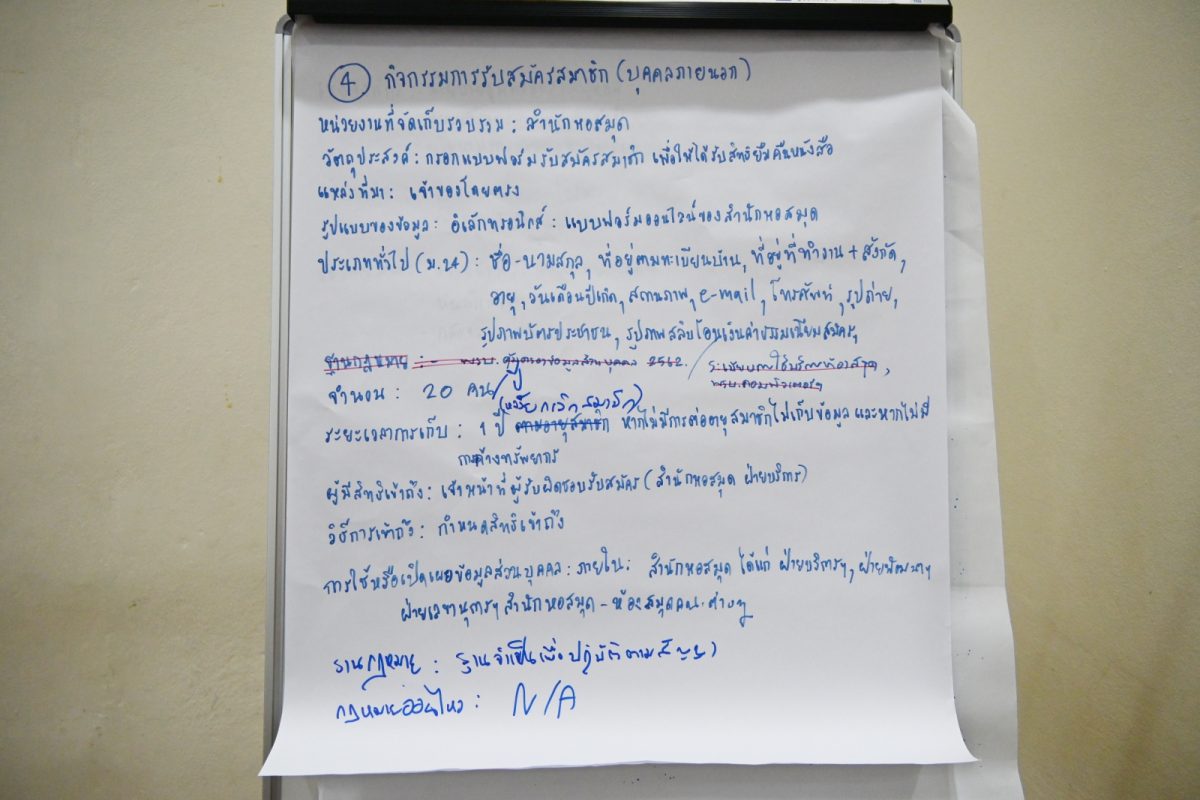 ④ กิจกรรมการรับสมัครสมาชิก (บุคคลภายนอก)
หน่วยงานที่จัดเก็บรวบรวม : สำนักหอสมุด
วัตถุประสงค์ : กรอกแบบฟอร์มรับสมัครสมาชิก เพื่อให้ได้รับสิทธิยืมคืนหนังสือ
แหล่งที่มา : เจ้าของโดยตรง
รูปแบบของข้อมูล : อิเล็กทรอนิกส์ : แบบฟอร์มออนไลน์ของสำนักหอสมุด
ประเภททั่วไป (ม.24) : ชื่อ-นามสกุล, ที่อยู่ตามทะเบียนบ้าน, ที่อยู่ที่ทำงาน + สังกัด,
อายุ, วันเดือนปีเกิด, สถานภาพ, e-mail, โทรศัพท์, รูปถ่าย,
รูปภาพบัตรประชาชน, รูปภาพสลิปโอนเงินค่าธรรมเนียมสมัครฯ
ฐานกฎหมาย : - พรบ. คุ้มครองข้อมูลส่วนบุคคล 2562 / ระเบียบการใช้บริการห้องสมุด,
พรบ.คอมพิวเตอร์ฯ
จำนวน : 20 คน/ปี
(หรือยกเลิกสมาชิก)
ระยะเวลาการเก็บ : 1 ปี ตามอายุสมาชิก หากไม่มีการต่ออายุสมาชิกไม่เก็บข้อมูล และหากไม่มี
การค้างทรัพยากร
ผู้มีสิทธิเข้าถึง : เจ้าหน้าที่ผู้รับผิดชอบรับสมัคร (สำนักหอสมุด ฝ่ายบริการ)
วิธีการเข้าถึง : กำหนดสิทธิเข้าถึง
การใช้หรือเปิดเผยข้อมูลส่วนบุคคล : ภายใน : สำนักหอสมุด ได้แก่ ฝ่ายบริการฯ, ฝ่ายพัฒนาฯ
ฝ่ายเลขานุการฯ สำนักหอสมุด - ห้องสมุดคณะต่างๆ
ฐานกฎหมาย : ฐานจำเป็นเพื่อปฏิบัติตามสัญญา
กฎหมายอ่อนไหว : N/A